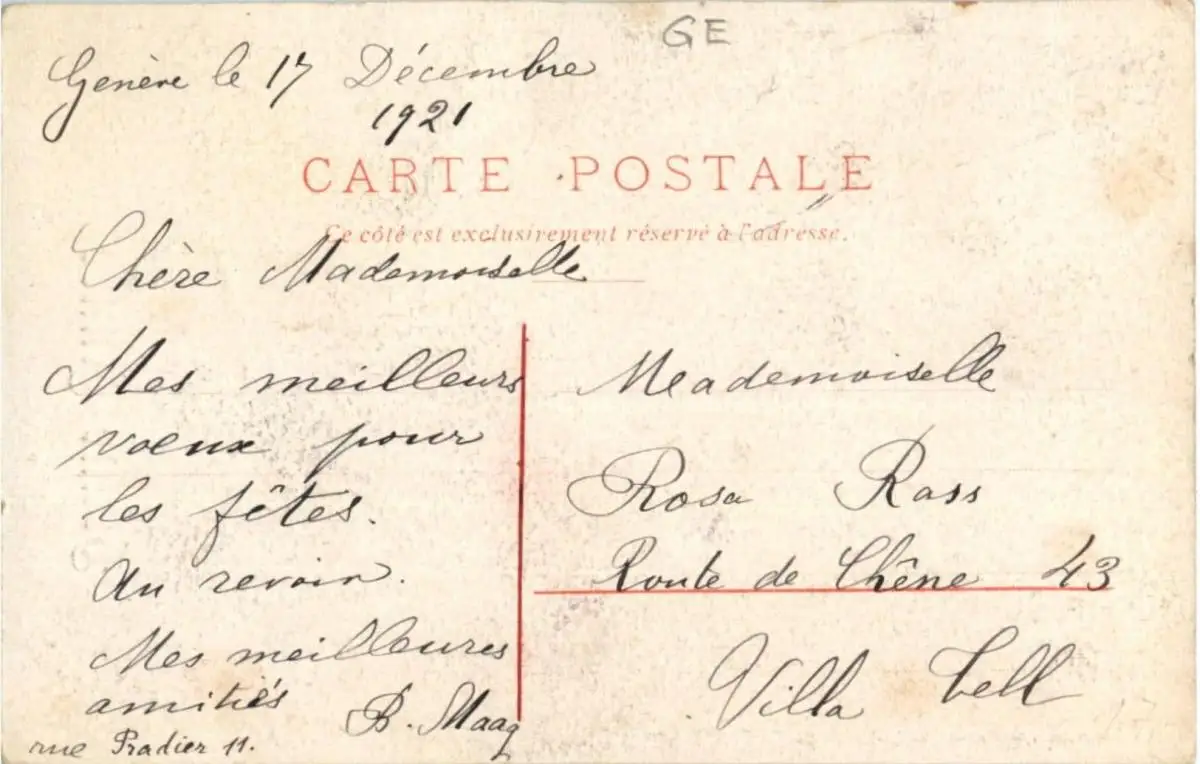 GE
Genève le 17 Décembre
1921
CARTE POSTALE
Ce côté est exclusivement réservé à l'adresse.
Chère Mademoiselle
Mes meilleurs
voeux pour
les fêtes.
Au revoir.
Mes meilleures
amitiés B. Maag
rue Pradier 11.
Meademoiselle
Rosa Rass
Route de Chêne 43
Villa Cell